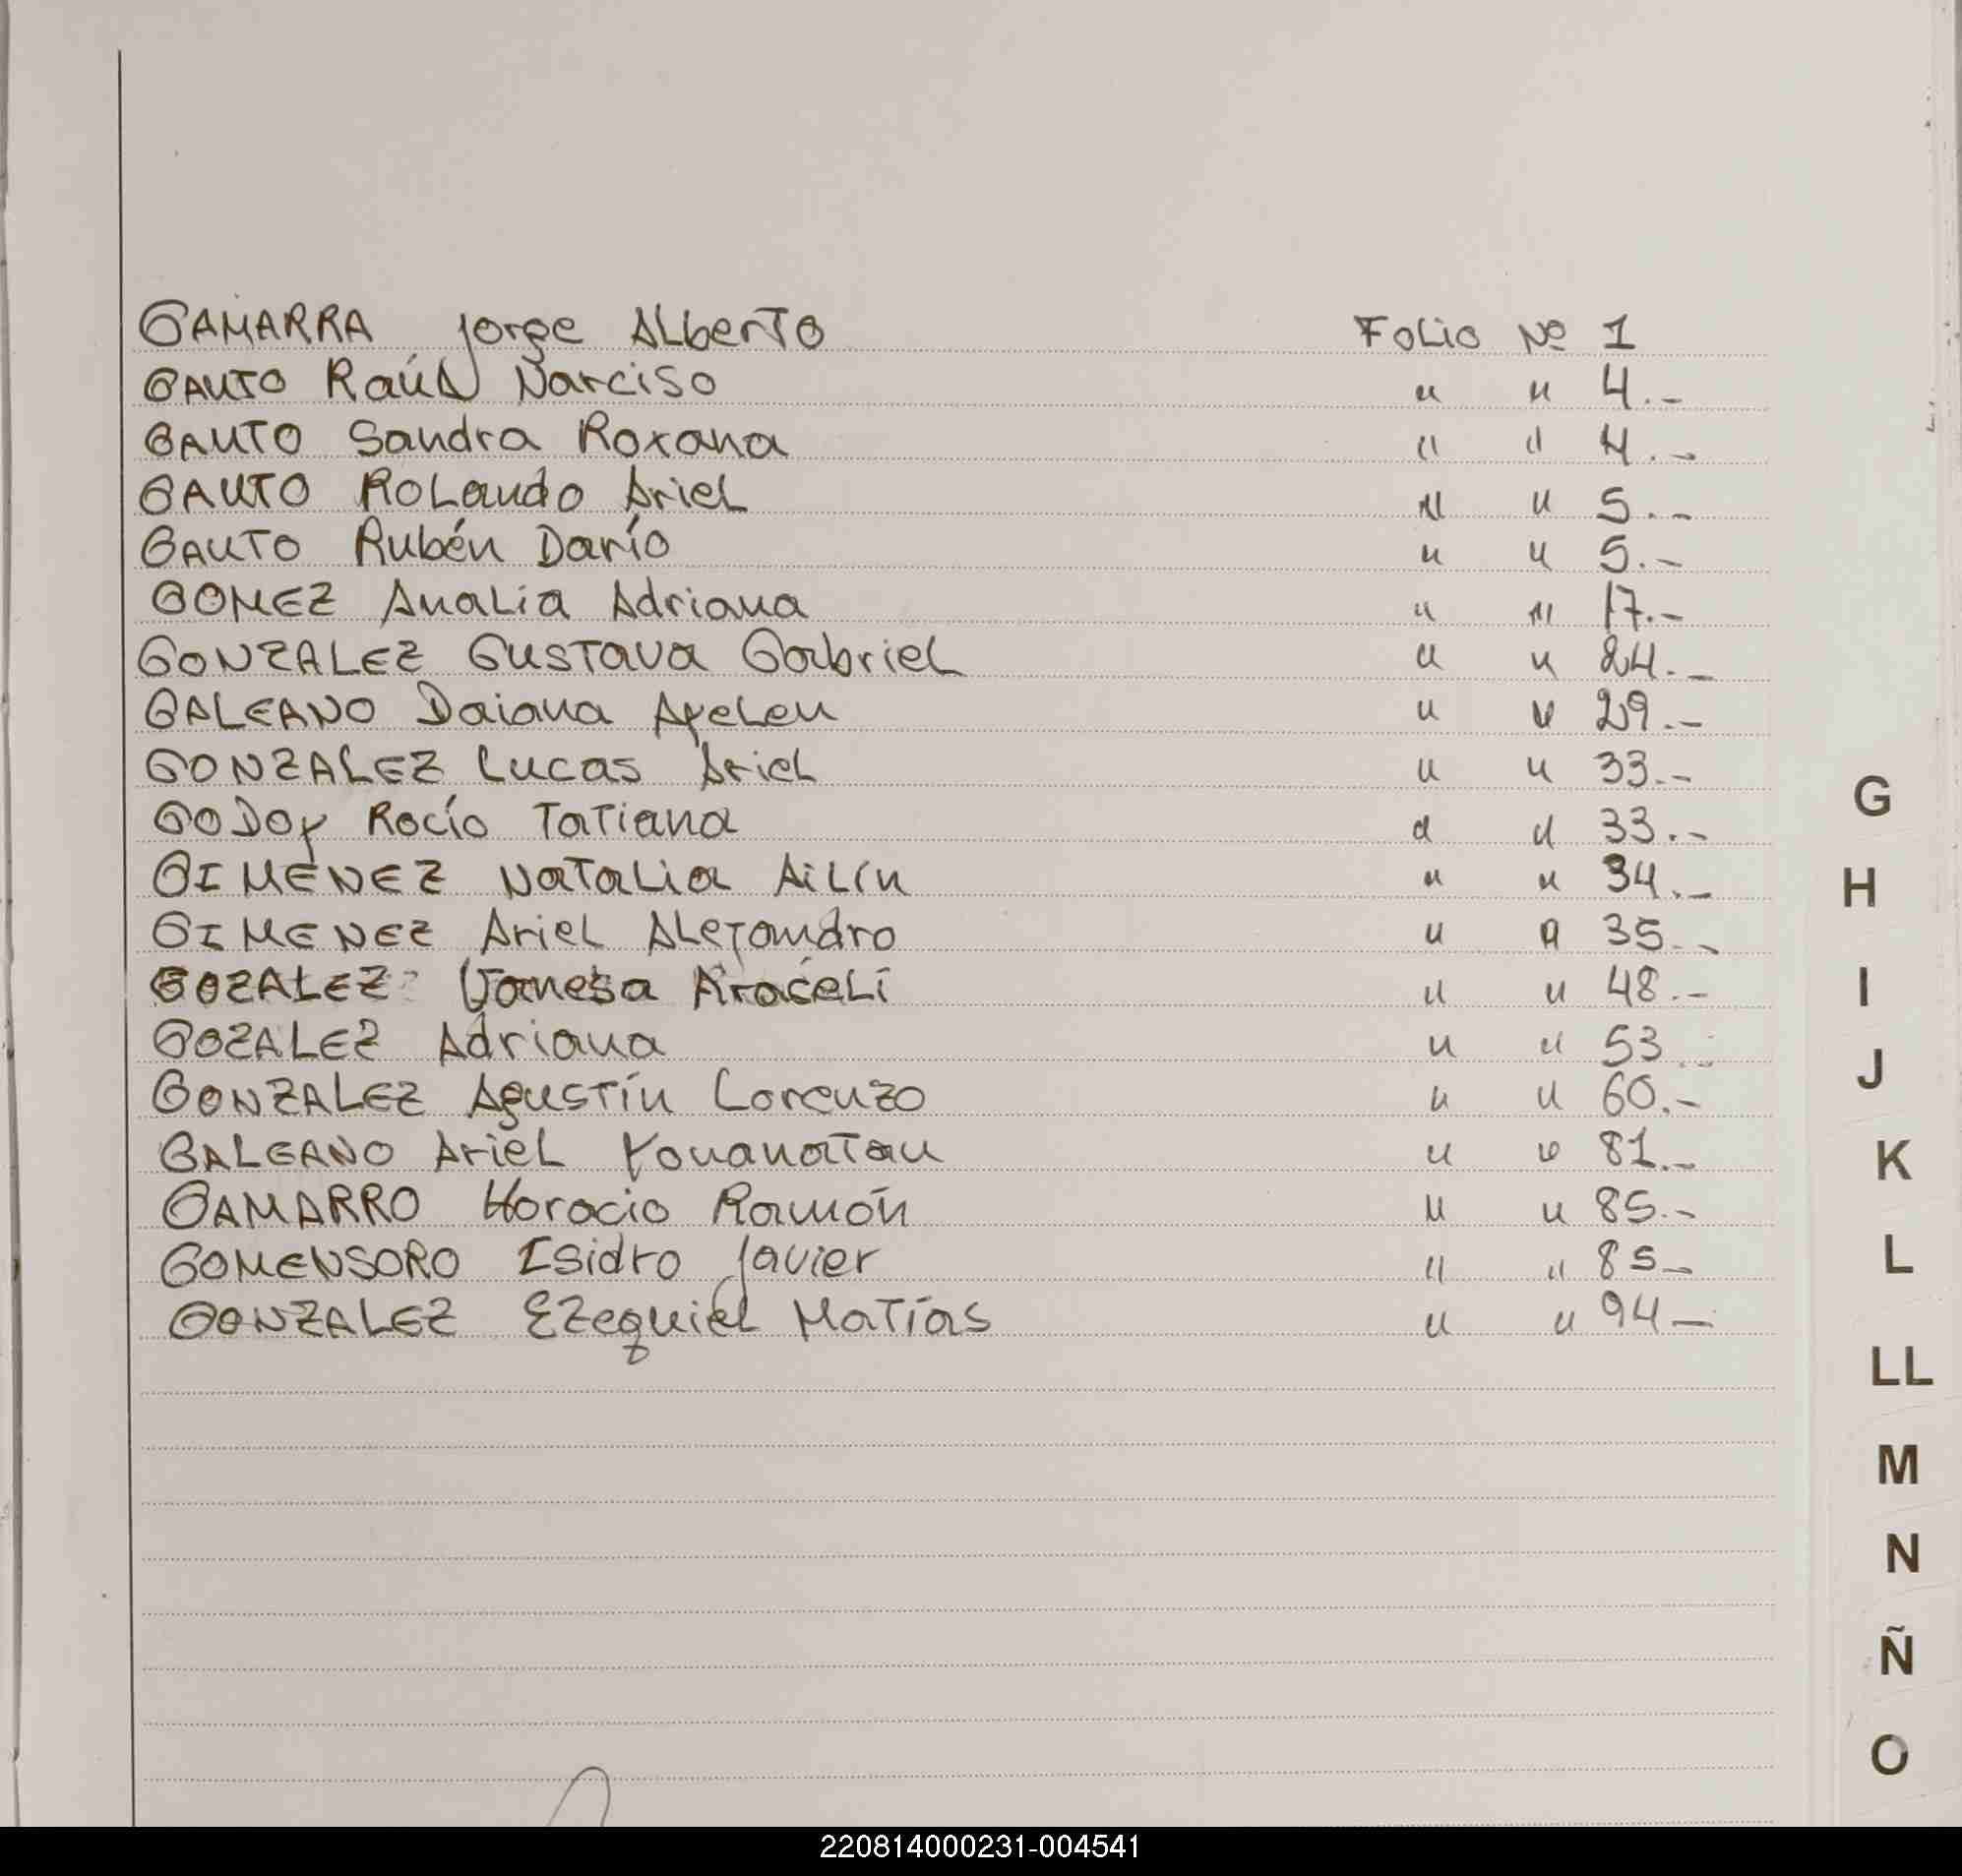 GAMARRA Jorge Alberto Folio Nº 1
GAUTO Raúl Narciso " " 4.-
GAUTO Sandra Roxana " " 4.-
GAUTO Rolando Ariel " " 5.-
GAUTO Rubén Darío " " 5.-
GOMEZ Analia Adriana " " 17.-
GONZALEZ Gustava Gabriel " " 24.-
GALEANO Daiana Ayelen " " 29.-
GONZALEZ Lucas Ariel " " 33.-
GODOY Rocío Tatiana " " 33.-
GIMENEZ Natalia Ailín " " 34.-
GIMENEZ Ariel Alejandro " " 35.-
GOZALEZ Vanesa Araceli " " 48.-
GOZALEZ Adriana " " 53.-
GONZALEZ Agustín Lorenzo " " 60.-
GALEANO Ariel Yonanatan " " 81.-
GAMARRO Horacio Ramón " " 85.-
GOMENSORO Isidro Javier " " 85-
GONZALEZ Ezequiel Matías " " 94-
G
H
I
J
K
L
LL
M
N
Ñ
O
220814000231-004541